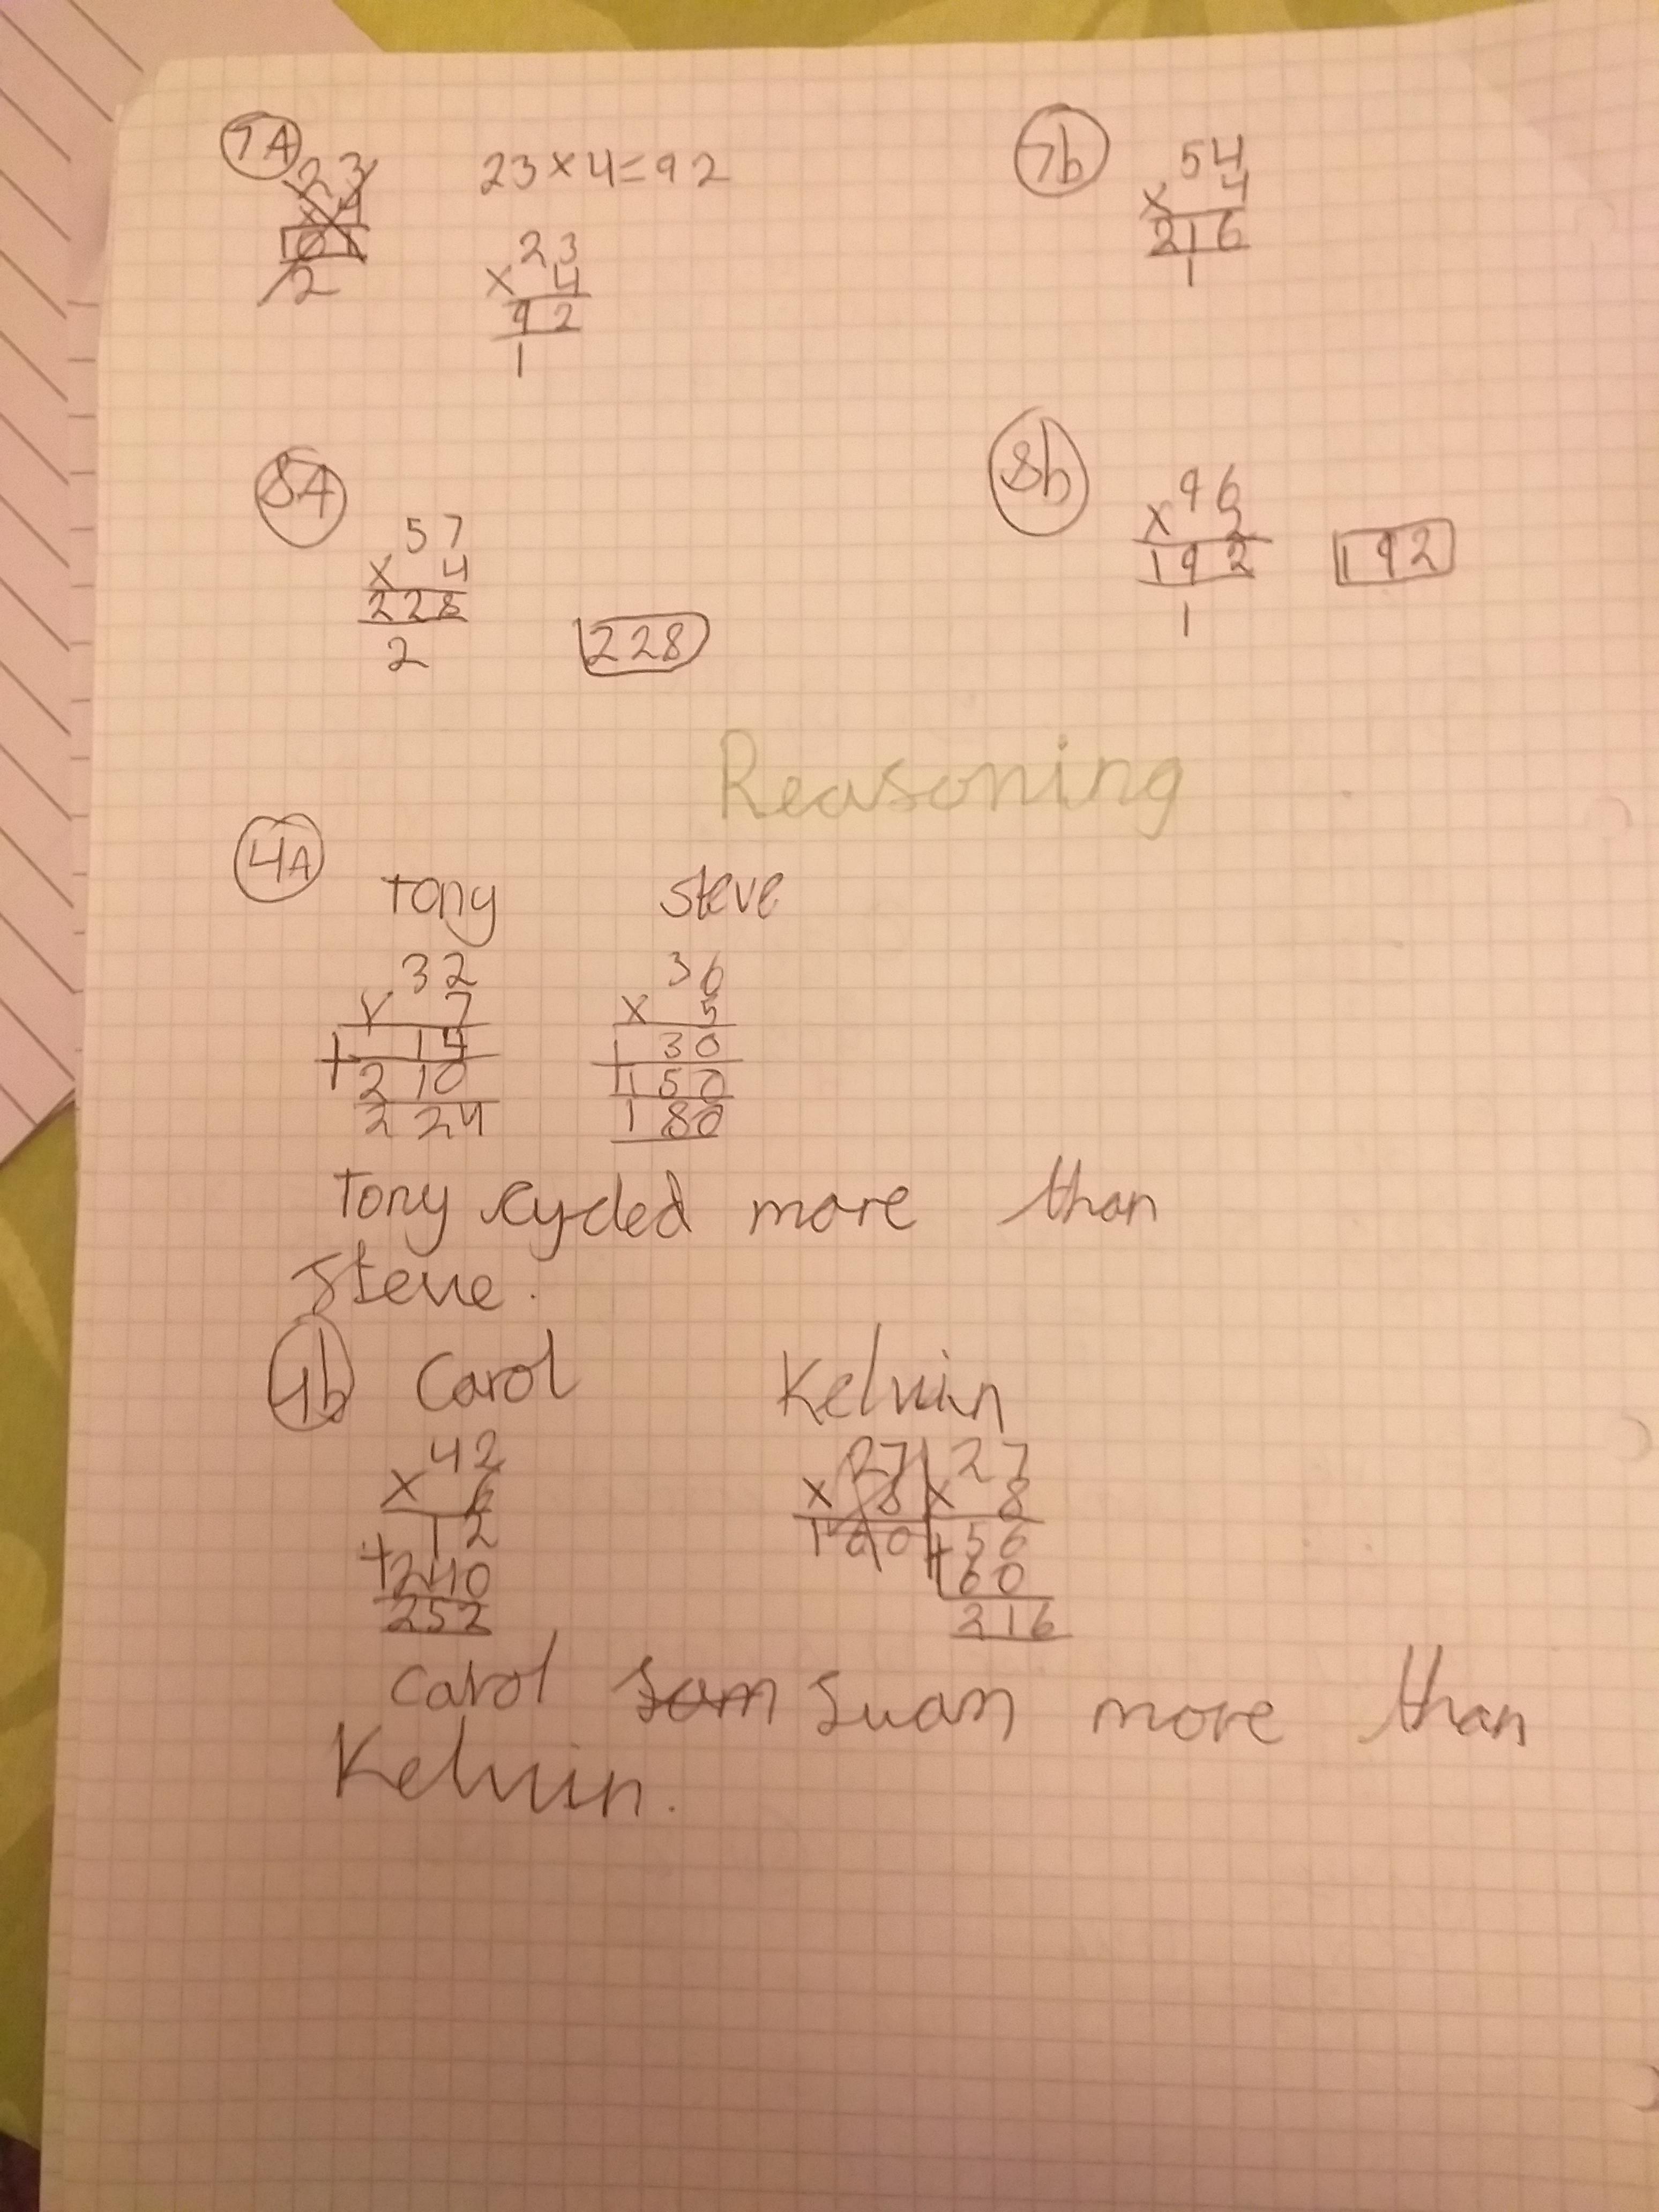 7A
23
× 4
01
2
23 × 4 = 92
23
× 4
92
1
7b
54
× 4
216
1
8A
57
× 4
228
2
228
8b
96
× 2
192
1
192
Reasoning
4A
Tony
32
× 7
14
+ 210
224
Steve
36
× 5
30
+ 150
180
Tony cycled more than
Steve.
4b
Carol
42
× 6
12
+ 240
252
Kelvin
27
× 8
160
27
× 8
56
+ 160
216
Carol Sam Suam more than
Kelvin.